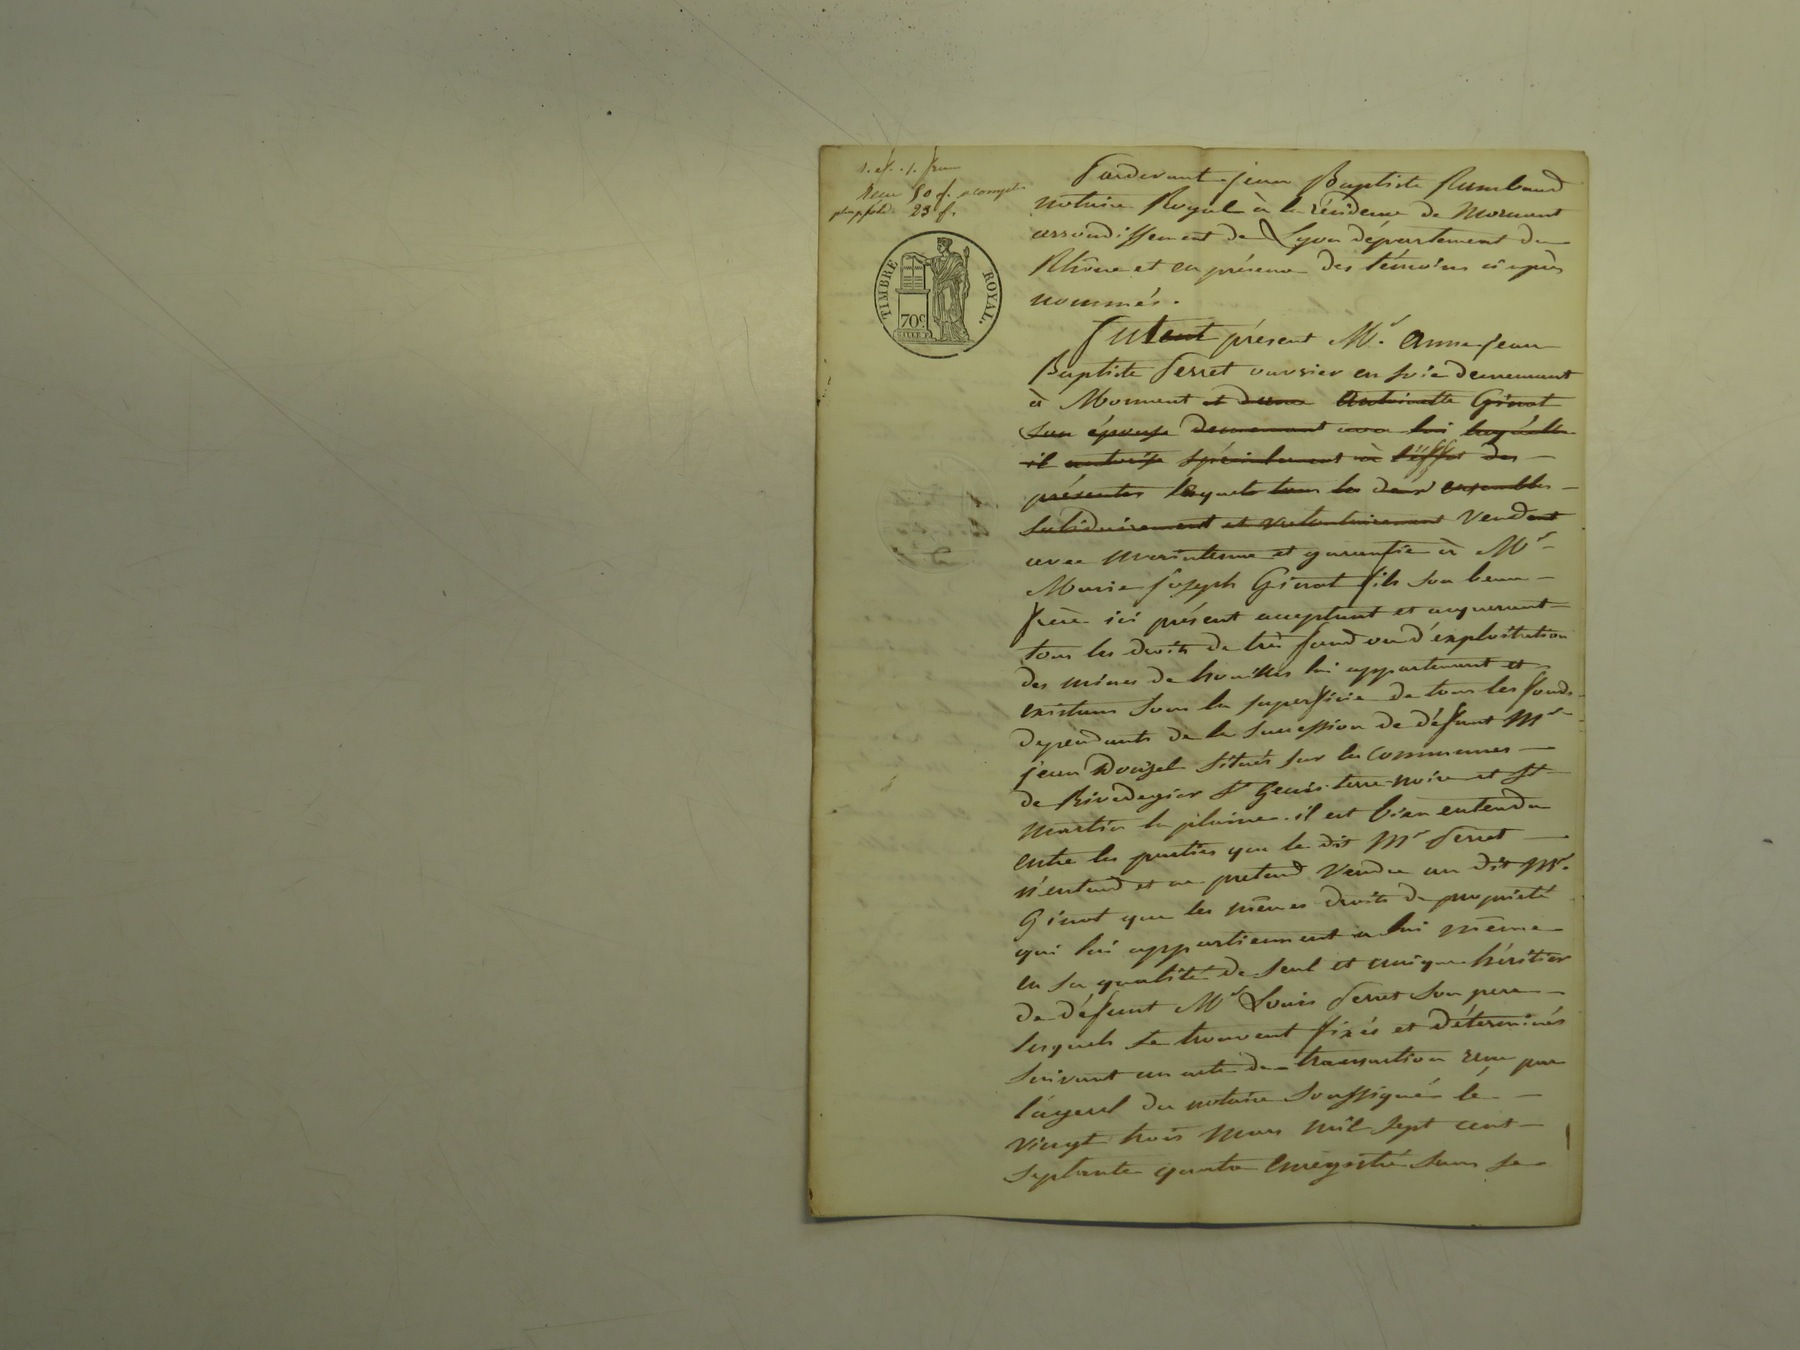 Reçu 50 f. a compte
23 f.
TIMBRE ROYAL.
70c
Pardevant jean Baptiste Rambaud
notaire Royal à la résidence de Mornant
arrondissement de Lyon département du
Rhône et en présence des témoins ci après
nommés.
Fut présent Mr. Anne jean
Baptiste Serret ouvrier en soie demeurant
à Mornant et dame Antoinette Ginot
son épouse demeurant avec lui laquelle
il autorise spécialement à l'effet des
présentes lesquels tous les deux ensembles
solidairement et volontairement Vendent
avec maintenue et garantie à Mr
Marie joseph Ginot fils son beau
frère ici présent acceptant et acquerant
tous les droits de très fond ou d'exploitation
des mines de houilles lui appartenant et
existans sous la superficie de tous les fonds
dependants de la succession de défunt Mr
jean Donzel situés sur les communes
de Rivedegier St Genis terre-noire et St
martin la plaine. il est bien entendu
entre les parties que le dit Mr Serret
n'entend et ne pretend Vendre au dit Mr.
Ginot que les mêmes droits de propriété
qui lui appartiennent a lui même
en sa qualité de seul et unique héritier
de défunt Mr Louis Serret son pere
lesquels se trouvent fixés et déterminés
suivant un acte de transaction reçu par
l'ayeul du notaire soussigné le
vingt trois mars mil sept cent
septante quatre enregistré sans se